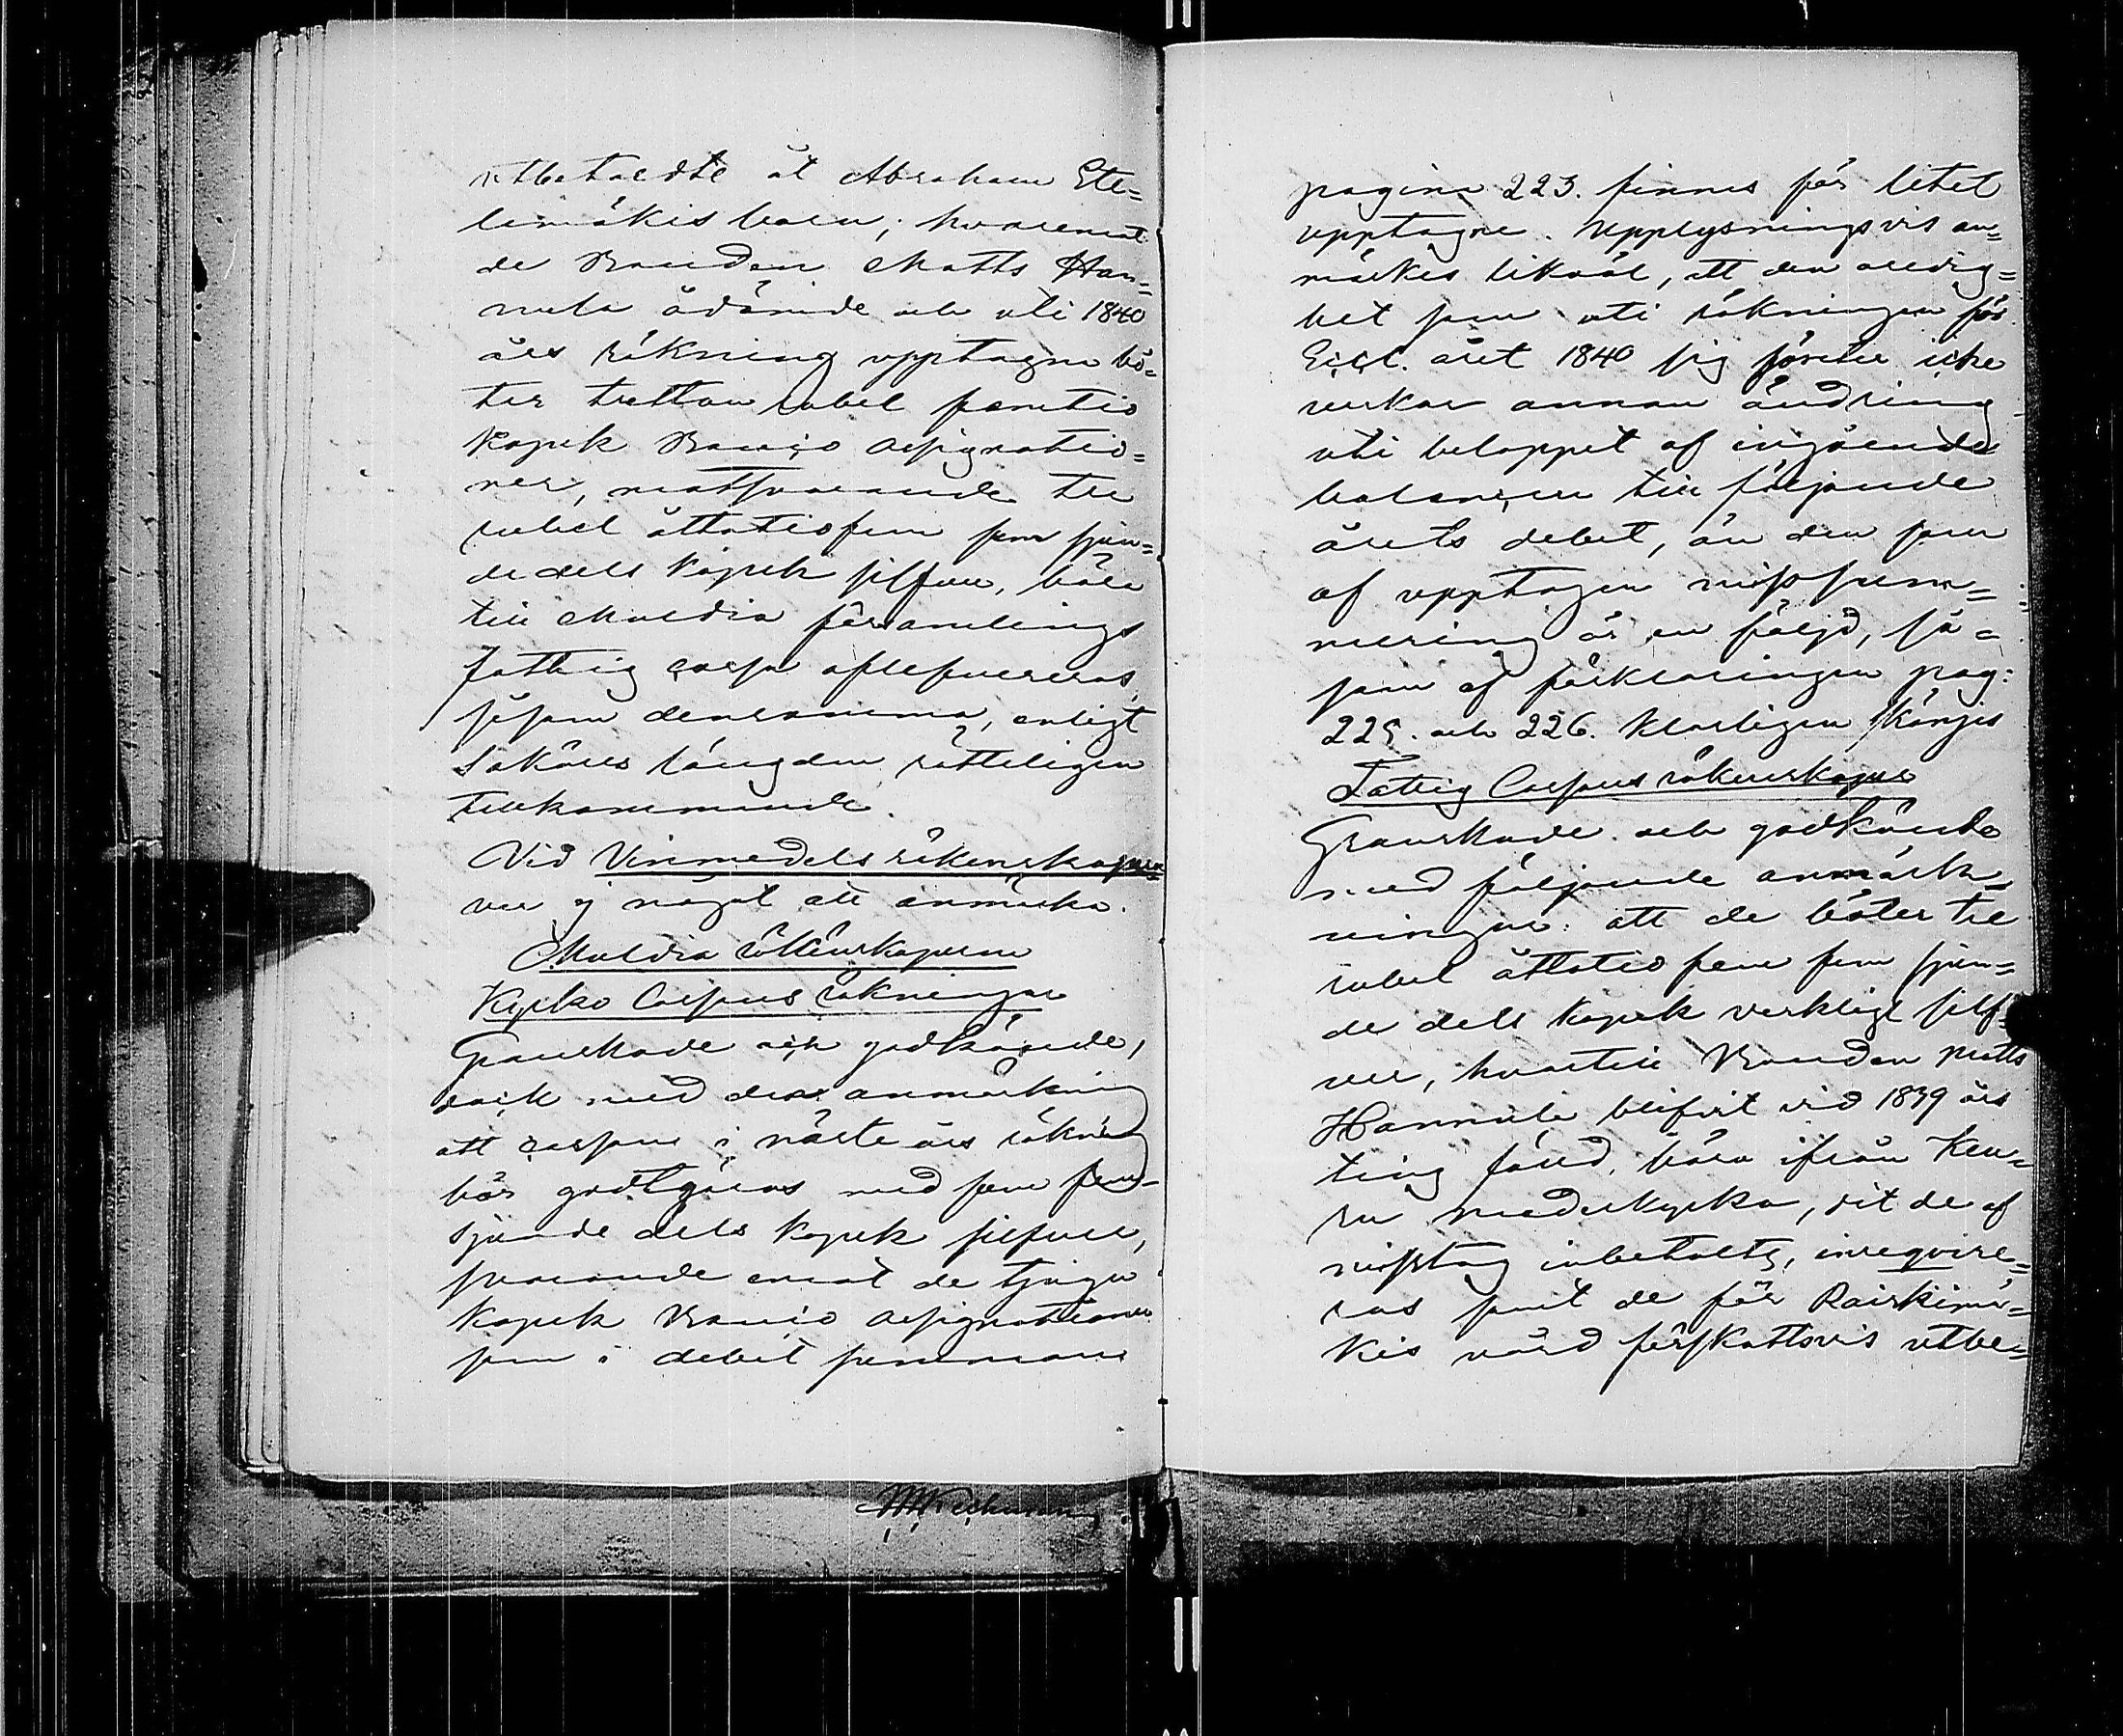 utbetaldte åt Abraham Ete-
lämäkis barn; hvaremot
de Bonden Matts Han-
nula ådömde och uti 1840
års räkning upptagne bö-
ter tretton rubel femtio
kopek Banco assignatio-
ner, motsvarande tre
rubel åttatiofem fem sjun-
de dels kopek silfver, böra
till Muldia församlings
fattig cassa aflefvereras,
såsom densamma, enligt
Saköres längden rätteligen
tillkommande.
Vid Vinmedels räkenskaper-
var ej något att anmärka.
Muldia räkenskaperne
Kyrko Cassans räkningar
Granskade och godkände,
dock med den anmärkning
att cassan i nästa års räkning
bör godtgöras med fem fem-
sjunde dels kopek silfver,
svarande emot de tjugu
kopek Banco assignationer
som i debet summan
pagina 223. finnes för litet
upptagne. Upplysningsvis an-
märkes likväl, att den oredig-
het som uti räkningen för
Eccl. året 1840 sig företer icke
verkar annan ändring
uti beloppet af ingående
balancen till följande
årets debet, än den som
af upptagen missum-
mering är en följd, så-
som af förklaringen pag:
225. och 226. klarligen skönjes
Fattig Cassans räkenskaper
Granskade och godkände
med följande anmärk-
ningar: att de böter tre
rubel åttatio fem fem sjun-
de dels kopek verkligt silf-
ver, hvartill Bonden Matts
Hannula blifvit vid 1839 års
ting fäld, böra ifrån Keu-
ru moderkyrka, dit de af
misstag inbetalts, inreqvire-
ras samt de för Raiskimä-
kis vård förskottsvis utbe-